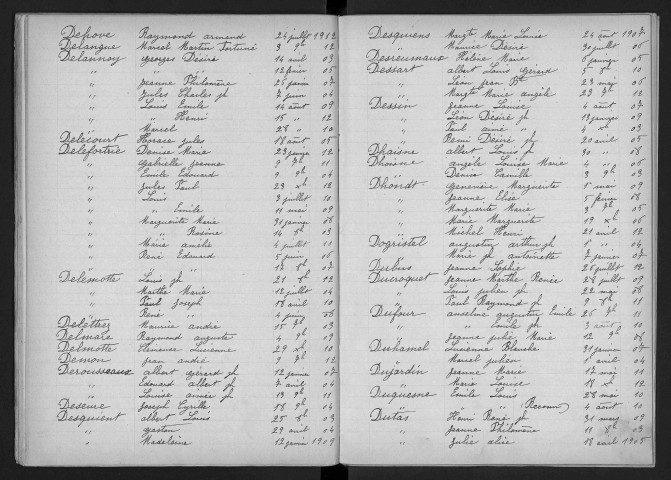 Defove Raymond armand 24 juillet 1912
Delangue Marcel Martin Fortuné 3 9bre 12
Delannoy Georges Désiré 14 avril 03
" " " 12 février 05
" Jeanne Philomène 26 juin 07
" Jules Charles jh 7 juin 04
" Louis Emile 14 août 09
" " Henri 15 " 12
" Marcel 28 " 10
Delécourt Horace jules 18 août 05
Delefortrie Denise Marie 23 janvier 12
" Gabrielle jeanne 9 11
" Emile Edouard 9 04
" Jules Paul 23 12
" Louis 3 juillet 10
" " Emile 11 mai 09
" Marguerite Marie 31 janvier 08
" " Rosine 14 03
" Marie amélie 4 juillet 11
" René Edouard 5 juin 06
" " 17 07
Delemotte Louis jh 21 12
" Marthe Marie 12 juillet 04
" Paul Joseph 18 avril 10
" René " 4 juin 06
Delettrez Maurice andré 15 03
Delmare Raymond auguste 4 09
Delmotte Clémence Lucienne 29 10
Demon jean andré 9 12
Derousseaux albert Gérard jh 12 janvier 07
" Edouard albert jh 7 avril 04
" Louise aimée jh 13 11
Deseure Joseph Cyrille 18 04
Desquient albert Louis 25 03
" gaston 29 avril 04
" Madeleine 12 janvier 1909
Desquiens Margte Marie Louise 24 août 1907
" Maurice Désiré 30 juillet 06
Desreumaux Hélène Marie 6 janvier 05
Dessart albert Louis Gérard 5 10
" Léon jean Bte 23 mai 06
" Margte Marie angèle 23 12
Dessin jeanne Louise 4 août 07
" Léon Désiré jh 13 janvier 09
" Paul aimé " 4 03
" Rémi Désiré jh 20 avril 05
Dhaisne albert Louis jh 30 " 08
Dhoisne angèle Louise Marie 4 " 06
" Denis Camille 3 03
Dhondt Geneviève Marguerite 1 mai 09
" Jeanne Elise 5 février 08
" Marguerite Marie 3 05
" Marie Marguerite 19 06
" Michel Henri 21 avril 12
Dogristel augustin arthur jh 1 " 04
" Marie jh antoinette 7 janvier 07
Dubus jeanne Sophie 26 juillet 12
Ducroquet jeanne Marthe Renée 28 juillet 09
" Louis julien jh 22 mai 08
" Paul Raymond jh 9 11
Dufour anselme augustin Emile 26 11
" " Emile jh 3 août 10
" jeanne julie Marie 12 08
Duhamel Lucienne Blanche 31 janvier 07
" Marcel julien 1 avril 04
Dujardin jeanne Marie 17 mai 11
" Marie Louise 18 12
Duquesne Emile Louis 28 mai 10
" " " (Reconn) 4 août 10
Dutas Henri René jh 31 mars 09
" jeanne Philomène 11 03
" julie alice 18 avril 1905